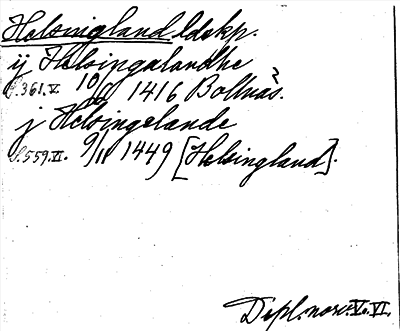 Helsingland. ldskp.
ij Helsingalandhe
S.361.V. 10/8 1416 Bollnäs.
j Helsingelande
S.559.VI. 9/11 1449 [Helsingland].
Dipl. norv. V. VI.